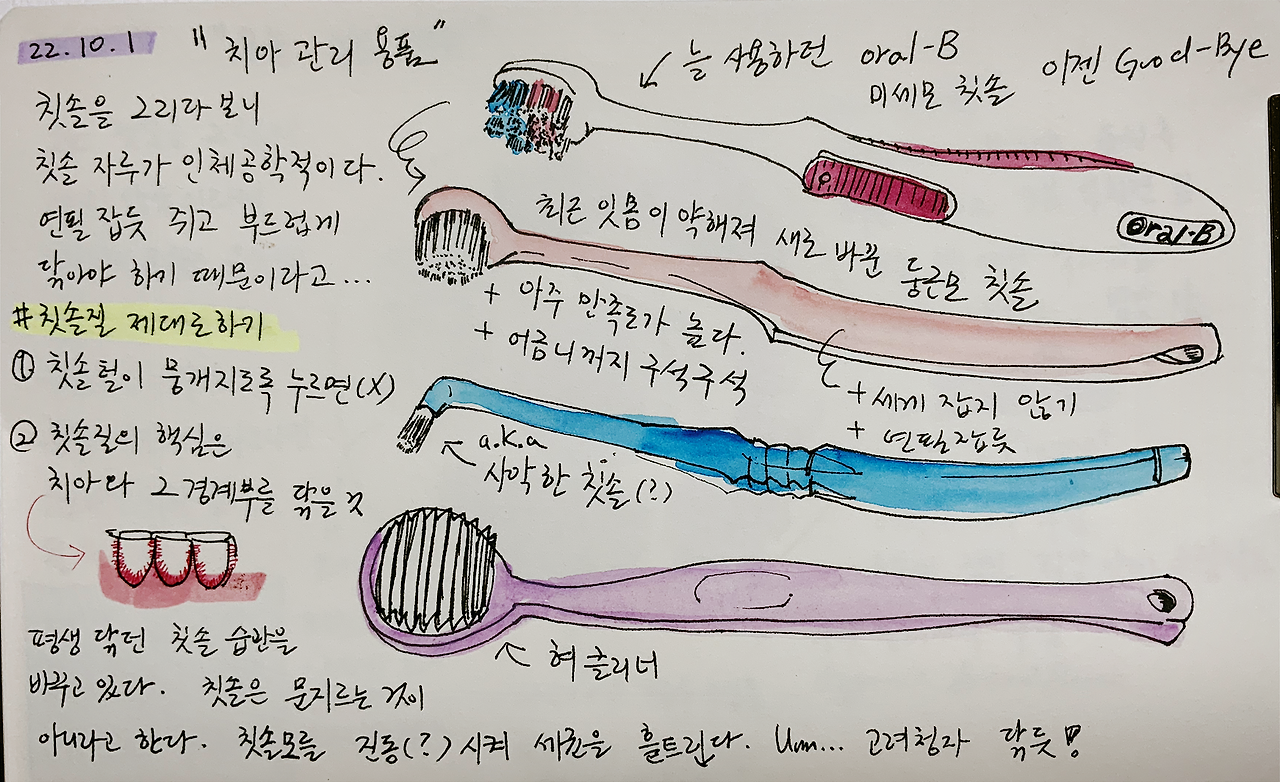 22.10.1 "치아 관리 용품"
칫솔을 그리다 보니
칫솔 자루가 인체공학적이다.
연필 잡듯 쥐고 부드럽게
닦아야 하기 때문이라고...
#칫솔질 제대로하기
① 칫솔털이 뭉개지도록 누르면(X)
② 칫솔질의 핵심은
치아와 그 경계부를 닦을 것
평생 닦던 칫솔 습관을
바꾸고 있다. 칫솔은 문지르는 것이
아니라고 한다. 칫솔모를 진동(?)시켜 세균을 흩트린다. Um... 고려청자 닦듯!
늘 사용하던 oral-B
미세모 칫솔
이젠 Good-Bye
Oral-B
최근 잇몸이 약해져 새로 바꾼
둥근모 칫솔
+ 아주 만족도가 높다.
+ 어금니까지 구석구석
+ 세게 잡지 않기
+ 연필잡듯
a.k.a
사악한 칫솔(?)
혀클리너